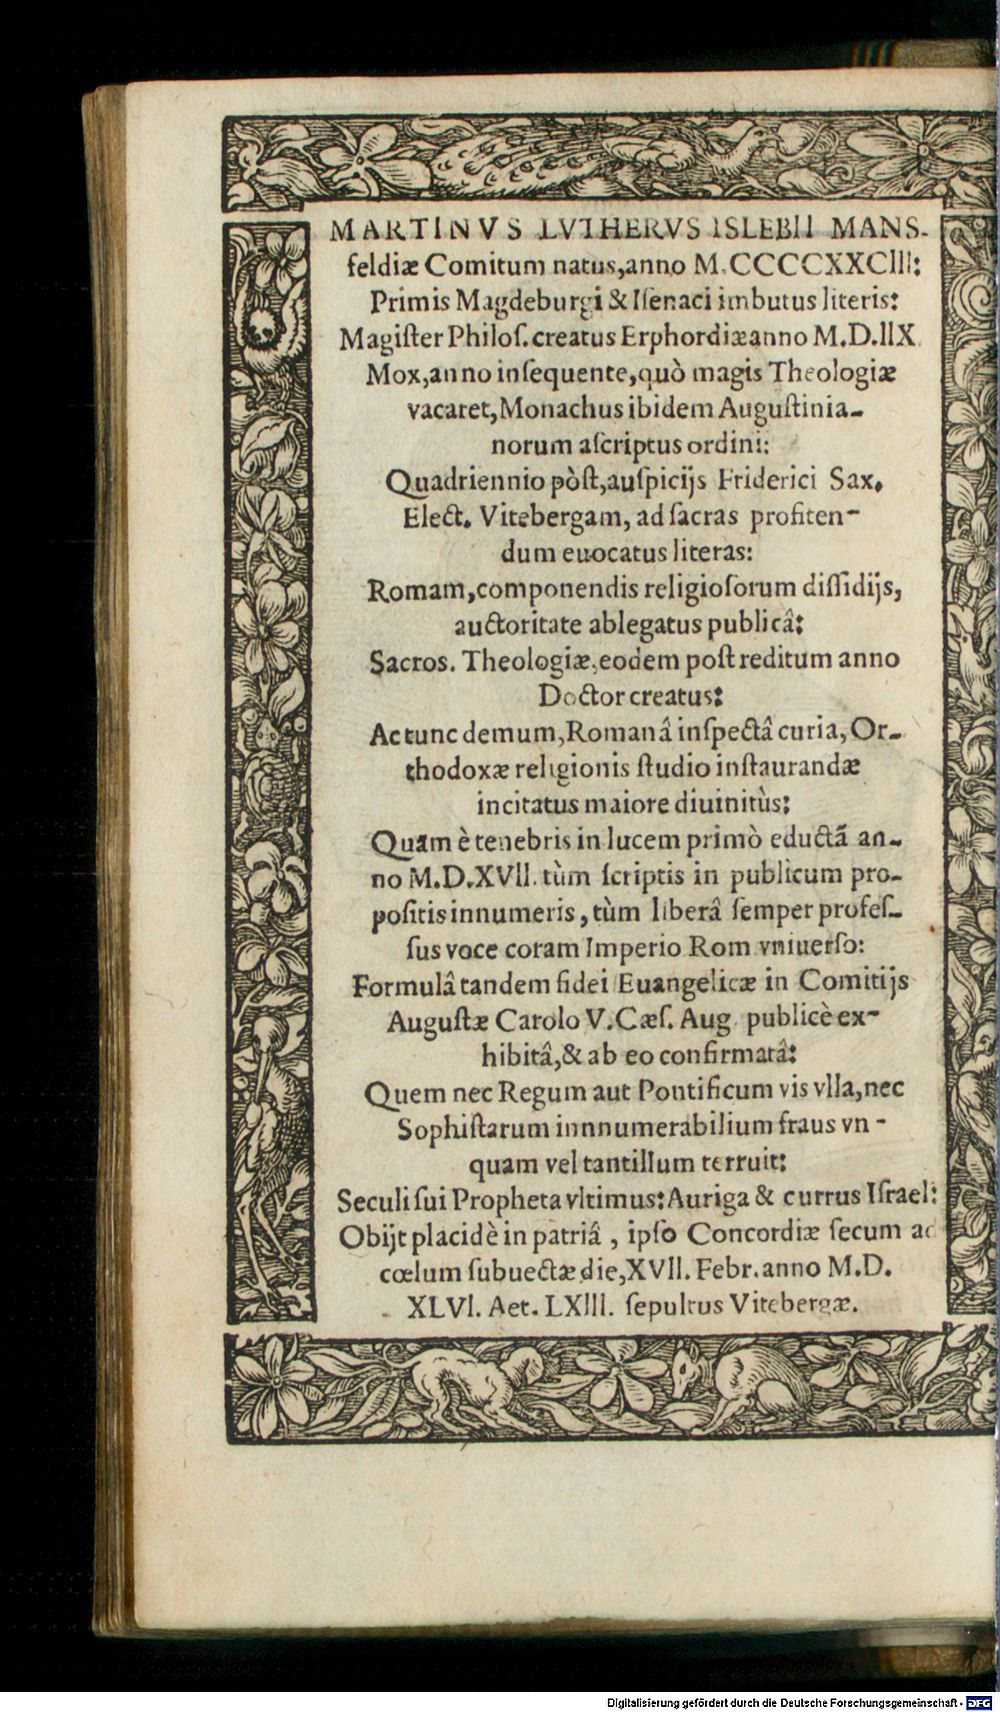 MARTINVS LVTHERVS ISLEBII MANS-
feldiæ Comitum natus,anno M.CCCCXXCIII:
Primis Magdeburgi & Iſenaci imbutus literis:
Magiſter Philoſ.creatus Erphordiæ anno M.D.IIX
Mox,anno inſequente,quò magis Theologiæ
vacaret,Monachus ibidem Auguſtinia-
norum aſcriptus ordini:
Quadriennio pòſt,auſpicijs Friderici Sax.
Elect. Vitebergam, ad ſacras profiten-
dum euocatus literas:
Romam,componendis religioſorum diſſidijs,
auctoritate ablegatus publicâ:
Sacros. Theologiæ,eodem poſt reditum anno
Doctor creatus:
Ac tunc demum,Romanâ inſpectâ curia, Or-
thodoxæ religionis ſtudio inſtaurandæ
incitatus maiore diuinitùs:
Quam è tenebris in lucem primò eductã an-
no M.D.XVII. tùm ſcriptis in publicum pro-
poſitis innumeris, tùm liberâ ſemper profeſ-
ſus voce coram Imperio Rom vniuerſo:
Formulâ tandem fidei Euangelicæ in Comitijs
Auguſtæ Carolo V.Cæſ. Aug. publicè ex-
hibitâ,& ab eo confirmatâ:
Quem nec Regum aut Pontificum vis vlla,nec
Sophiſtarum innnumerabilium fraus vn-
quam vel tantillum terruit:
Seculi ſui Propheta vltimus: Auriga & currus Iſrael:
Obijt placidè in patriâ, ipſo Concordiæ ſecum ad
cœlum ſubuectæ die,XVII. Febr.anno M.D.
XLVI. Aet. LXIII. ſepultus Vitebergæ.
Digitalisierung gefördert durch die Deutsche Forschungsgemeinschaft - DFG